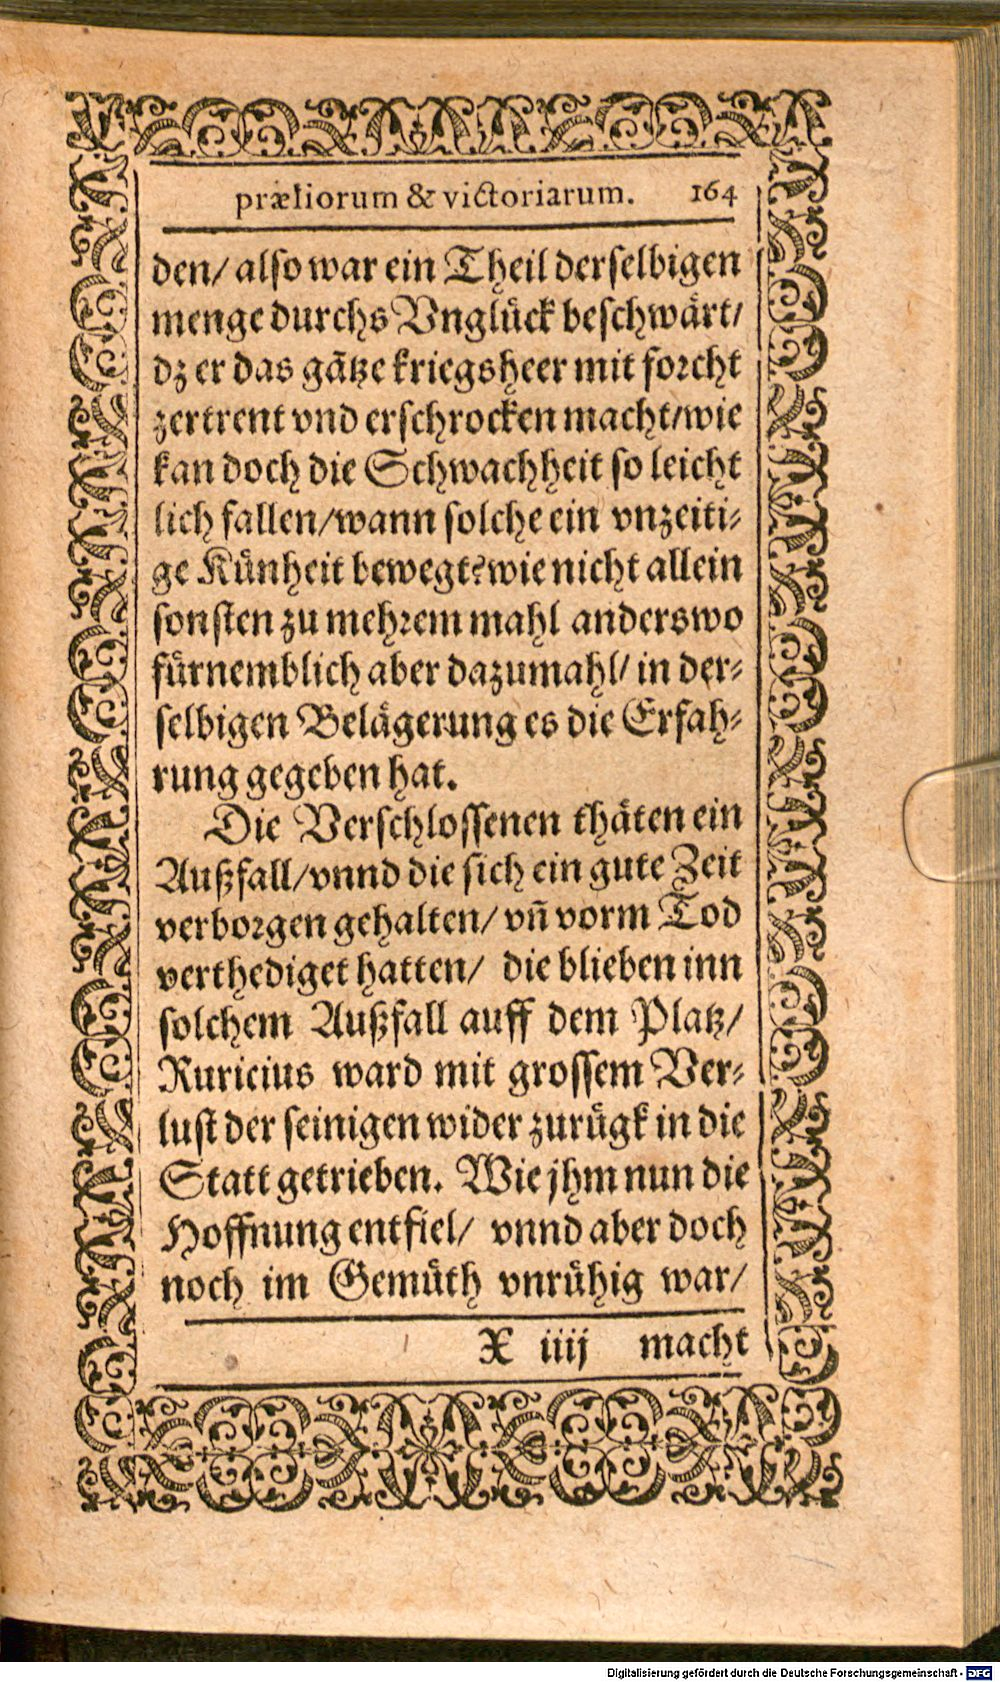 præliorum & victoriarum. 164
den/ also war ein Theil derselbigen
menge durchs Vnglück beschwärt/
dz er das gãtze kriegsheer mit forcht
zertrent vnd erschrocken macht/wie
kan doch die Schwachheit so leicht
lich fallen/wann solche ein vnzeiti-
ge Künheit bewegt?wie nicht allein
sonsten zu mehrem mahl anderswo
fürnemblich aber dazumahl/ in der-
selbigen Belägerung es die Erfah-
rung gegeben hat.
Die Verschlossenen thäten ein
Außfall/vnnd die sich ein gute Zeit
verborgen gehalten/ vñ vorm Tod
verthediget hatten/ die blieben inn
solchem Außfall auff dem Platz/
Ruricius ward mit grossem Ver-
lust der seinigen wider zurügk in die
Statt getrieben. Wie jhm nun die
Hoffnung entfiel/ vnnd aber doch
noch im Gemüth vnrühig war/
X iiij macht
Digitalisierung gefördert durch die Deutsche Forschungsgemeinschaft - DFG